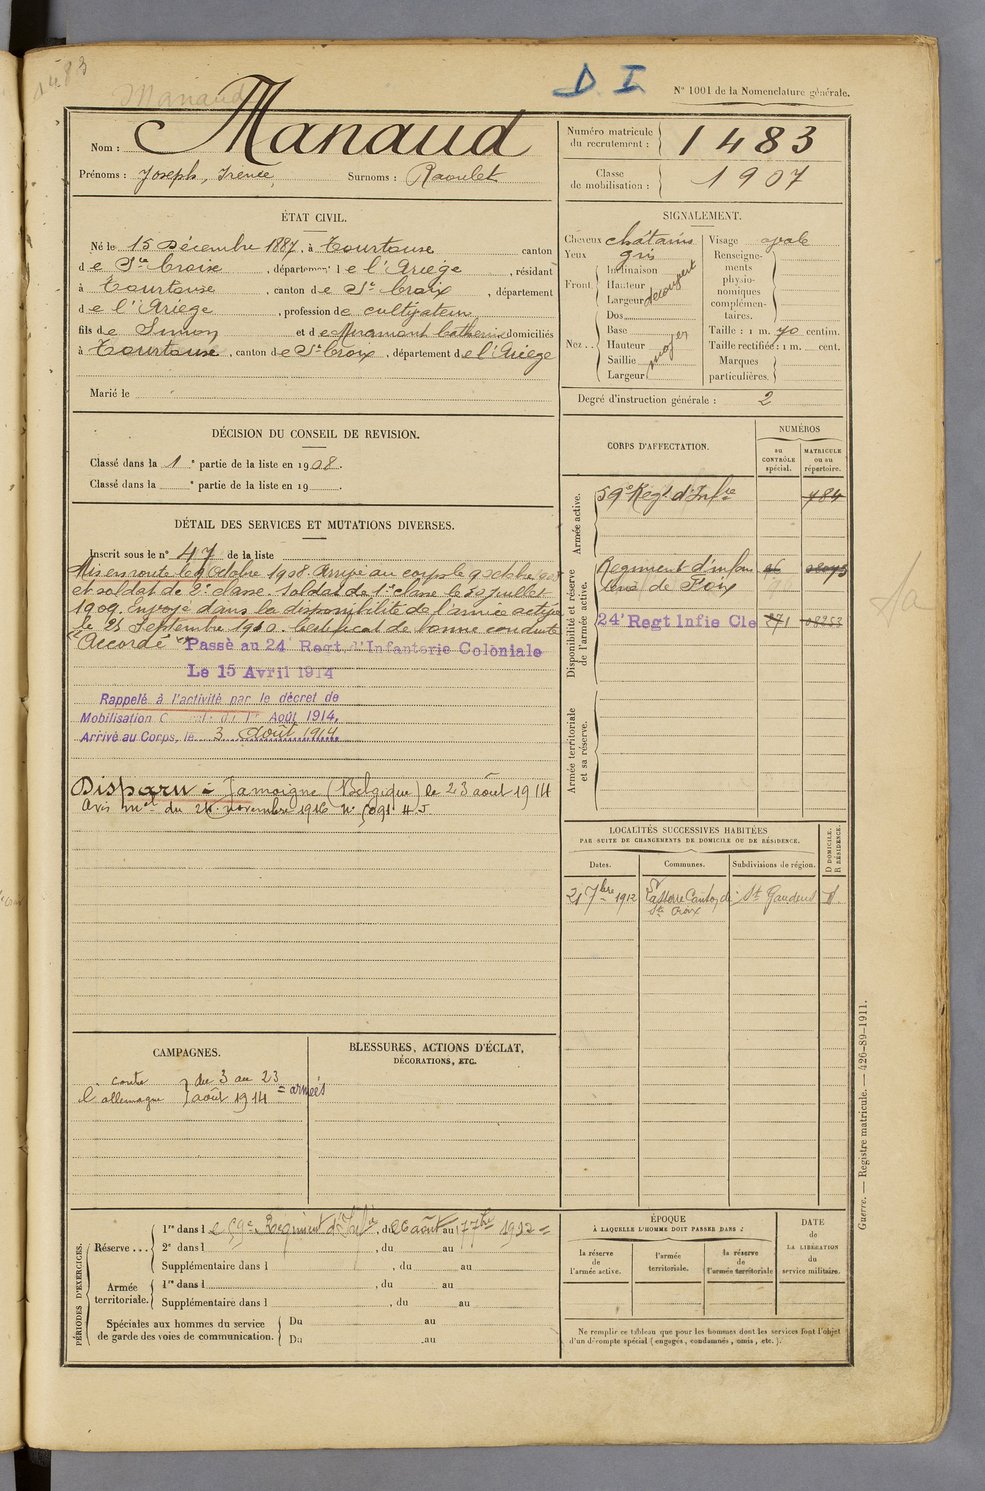 1483
Manaud
D. I.
N° 1001 de la Nomenclature générale.
Nom : Manaud
Prénoms : Joseph, Irénée, Surnoms : Raoulet
Numéro matricule du recrutement : 1483
Classe de mobilisation : 1907
ÉTAT CIVIL.
Né le 15 Décembre 1887, à Tourtouse canton
de Ste Croix, département de l'Ariège, résidant
à Tourtouse, canton de Ste Croix, département
de l'Ariège, profession de cultivateur,
fils de Simon et de Miramont Catherine domiciliés
à Tourtouse, canton de Ste Croix, département de l'Ariège
Marié le
SIGNALEMENT.
Cheveux châtains
Yeux gris
Front. Inclinaison
Hauteur
Largeur découvert
Nez.. Dos
Base
Hauteur
Saillie
Largeur moyen
Visage ovale
Renseignements physionomiques complémentaires.
Taille : 1 m. 70 centim.
Taille rectifiée : 1 m. cent.
Marques particulières.
Degré d'instruction générale : 2
DÉCISION DU CONSEIL DE REVISION.
Classé dans la 1e partie de la liste en 1908.
Classé dans la e partie de la liste en 19
DÉTAIL DES SERVICES ET MUTATIONS DIVERSES.
Inscrit sous le n° 47 de la liste
Mis en route le 9 Octobre 1908. Arrivé au corps le 9 octobre
et soldat de 2e classe. Soldat de 1e classe le 20 juillet
1909. Envoyé dans la disponibilité de l'armée active
le 25 Septembre 1910. Certificat de bonne conduite
"Accordé"
Passé au 24 Regt. d'Infanterie Colòniale
Le 15 Avril 1914
Rappelé à l'activité par le décret de
Mobilisation du 1er Août 1914.
Arrivé au Corps, le 3 Août 1914
Disparu à Jamoigne (Belgique) le 23 août 1914
Avis mel du 24 novembre 1916 N°
CORPS D'AFFECTATION.
NUMÉROS
au CONTRÔLE spécial.
MATRICULE ou au répertoire.
Armée active.
59e Régt d'Infrie 484
Disponibilité et réserve de l'armée active.
Régiment d'infan
terie de Foix
24' Regt Infie Cle 08253
Armée territoriale et sa réserve.
LOCALITÉS SUCCESSIVES HABITÉES
PAR SUITE DE CHANGEMENTS DE DOMICILE OU DE RÉSIDENCE.
Dates. Communes. Subdivisions de région. D DOMICILE. R RÉSIDENCE.
21 7bre 1912 Lasserre Canton de Ste Croix St Gaudens D
CAMPAGNES.
contre l'allemagne du 3 au 23 août 1914 = armées
BLESSURES, ACTIONS D'ÉCLAT,
DÉCORATIONS, ETC.
PÉRIODES D'EXERCICES.
Réserve... 1re dans le 59e Régiment d'Infie, du 26 août au 17 7bre 1912 =
2e dans l , du au
Supplémentaire dans l , du au
Armée territoriale. 1re dans l , du au
Supplémentaire dans l , du au
Spéciales aux hommes du service de garde des voies de communication. Du au
Du au
ÉPOQUE
À LAQUELLE L'HOMME DOIT PASSER DANS :
la réserve de l'armée active.
l'armée territoriale.
la réserve de l'armée territoriale
DATE de LA LIBÉRATION du service militaire.
Ne remplir ce tableau que pour les hommes dont les services font l'objet
d'un décompte spécial (engagés, condamnés, omis, etc.).
Guerre. — Registre matricule. — 426-89-1911.